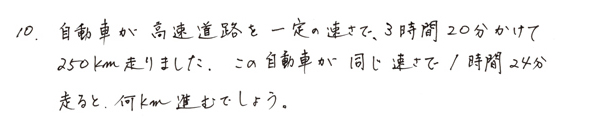 10. 自動車が高速道路を一定の速さで、3時間20分かけて
250km走りました。この自動車が同じ速さで1時間24分
走ると、何km進むでしょう。